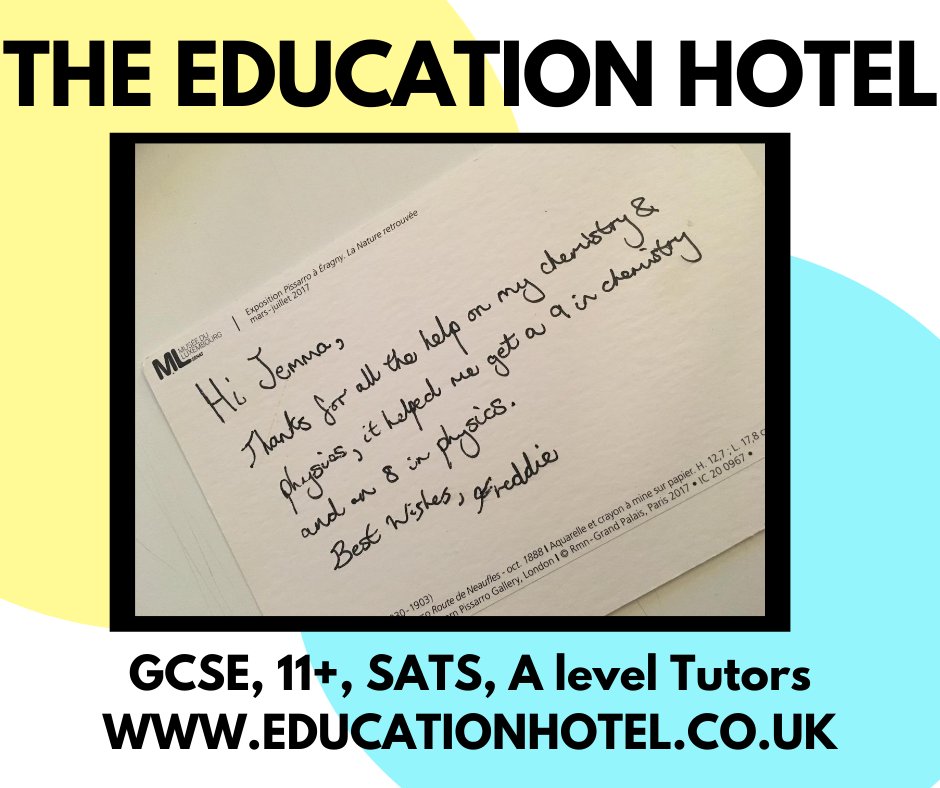 THE EDUCATION HOTEL
ML MUSÉE DU
LUXEMBOURG
SÉNAT
Exposition Pissarro à Éragny. La Nature retrouvée
mars-juillet 2017
Hi Jemma,
Thanks for all the help on my chemistry &
physics, it helped me get a 9 in chemistry
and an 8 in physics.
Best Wishes, Freddie
30-1903)
Route de Neaufles - oct. 1888 | Aquarelle et crayon à mine sur papier. H. 12,7 ; L. 17,8 c
rn Pissarro Gallery, London | © Rmn-Grand Palais, Paris 2017 • IC 20 0967 •
GCSE, 11+, SATS, A level Tutors
WWW.EDUCATIONHOTEL.CO.UK